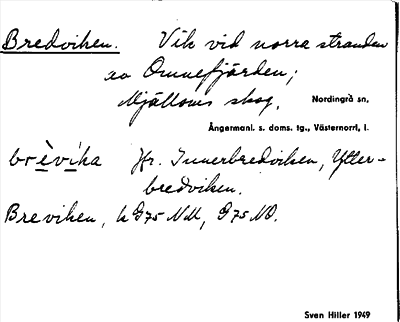 Bredviken. Vik vid norra stranden
av Omnefjärden;
Mjälloms skog. Nordingrå sn,
Ångermanl. s. doms. tg., Västernorrl. l.
brèvíka Jfr. Innerbredviken, Ytter-
bredviken.
Breviken, k G75 NV, G75 NO.
Sven Hiller 1949